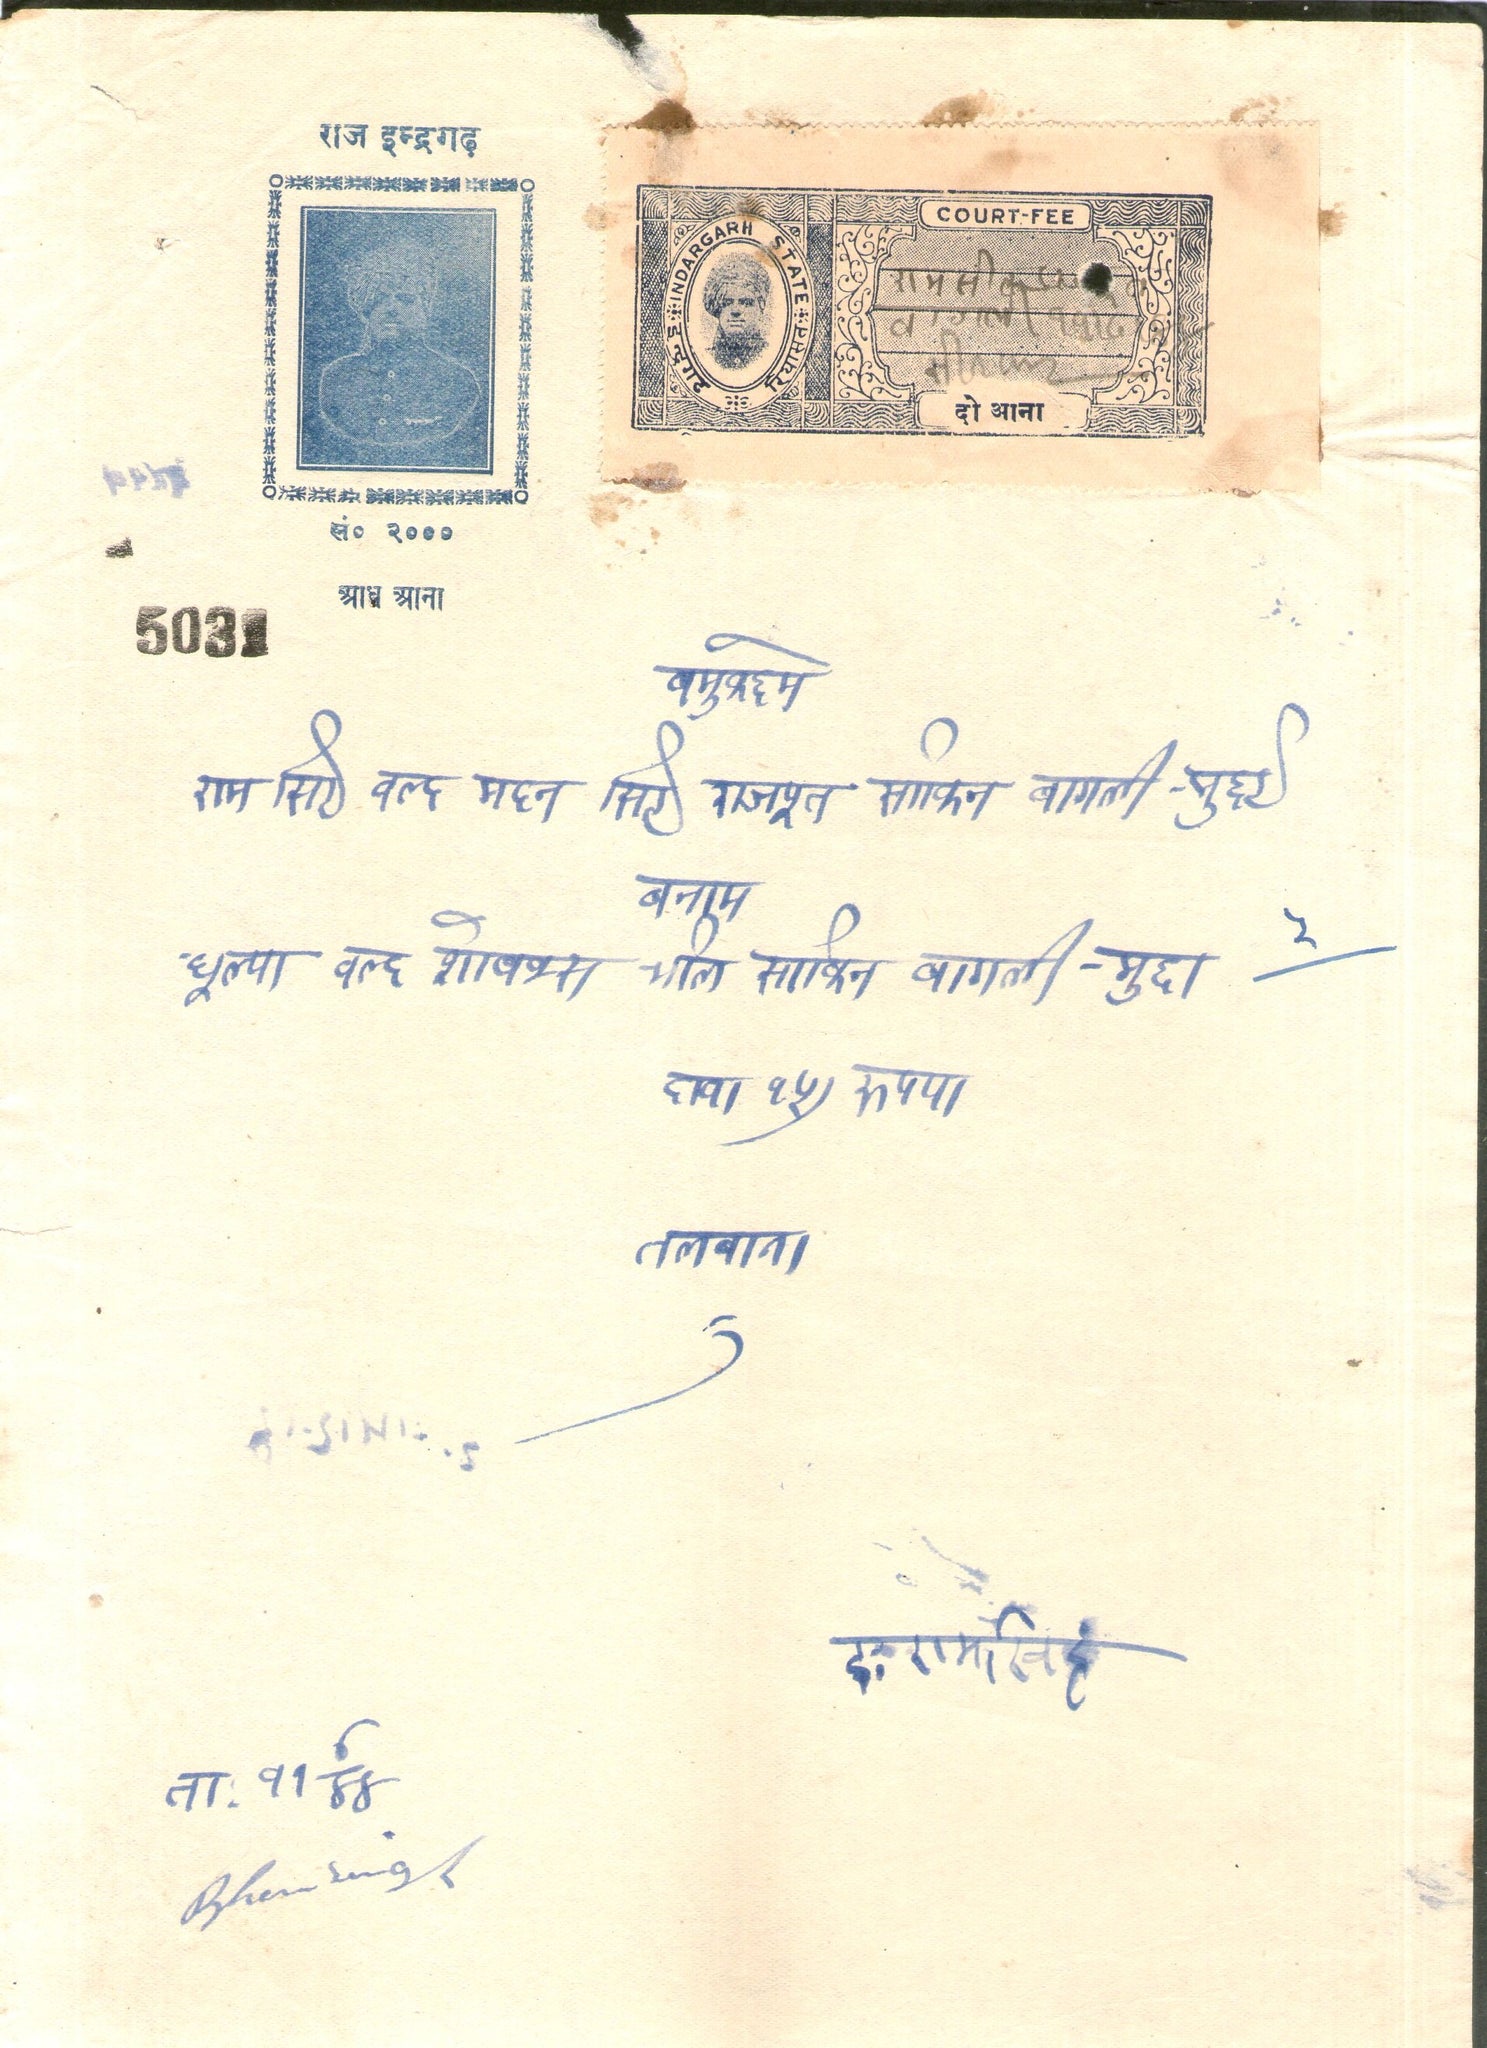 राज इन्द्रगढ़
सं० २०००
आध आना
5031
COURT-FEE
INDARGARH STATE
इन्द्रगढ़ रियासत
दो आना
बमुकद्दमे
राम सिंह वल्द मदन सिंह राजपूत साकिन बागली - मुद्दई
बनाम
धूल्या वल्द भील साकिन बागली - मुद्दा
दावा १५) रुपया
तलबाना
द: रामसिंह
ता: ११